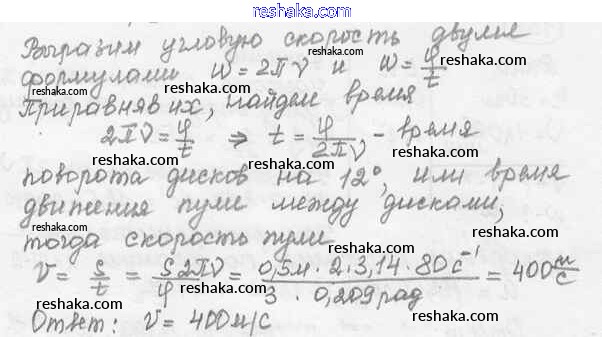 reshaka.com
Выразим угловую скорость двумя
reshaka.com
формулами ω = 2πν и ω = φ/t
reshaka.com
приравняв их, найдем время
reshaka.com
2πν = φ/t ⇒ t = φ/2πν - время
reshaka.com reshaka.com
поворота дисков на 12°, или время
reshaka.com
движения пули между дисками,
reshaka.com reshaka.com
тогда скорость пули
reshaka.com
V = S/t = S2πν/φ = 0,5м · 2 · 3,14 · 80 с⁻¹ / 3 · 0,209 рад = 400 м/с
reshaka.com reshaka.com
Ответ: V = 400 м/с
reshaka.com